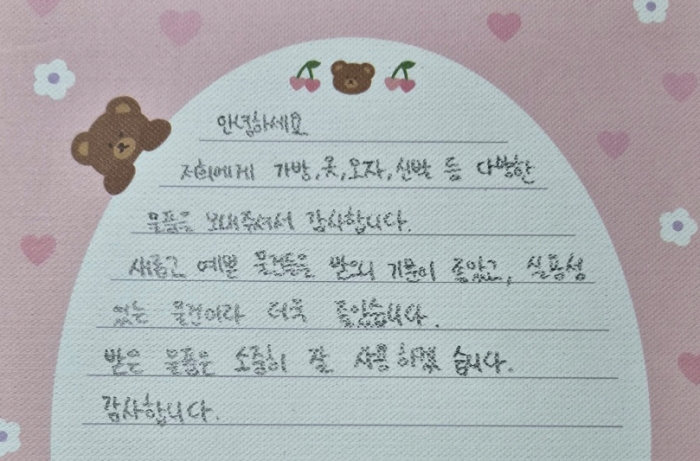 안녕하세요
저희에게 가방, 옷, 모자, 신발 등 다양한
물품을 보내주셔서 감사합니다.
새롭고 예쁜 물건들을 받으니 기분이 좋았고, 실용성
있는 물건이라 더욱 좋았습니다.
받은 물품은 소중히 잘 사용하겠습니다.
감사합니다.